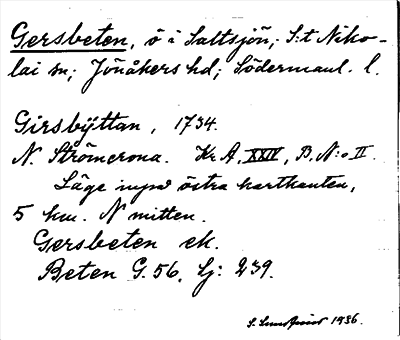 Gersbeten, ö i Saltsjön; S:t Niko-
lai sn; Jönåkers hd; Södermanl. l.
Girsbÿttan, 1734.
N. Strömcrona. Kr A, XXIV, B, N:o II.
Läge invid östra kartkanten,
5 km. N mitten.
Gersbeten ek.
Beten G. 56. Lj: 239.
S. 1936.